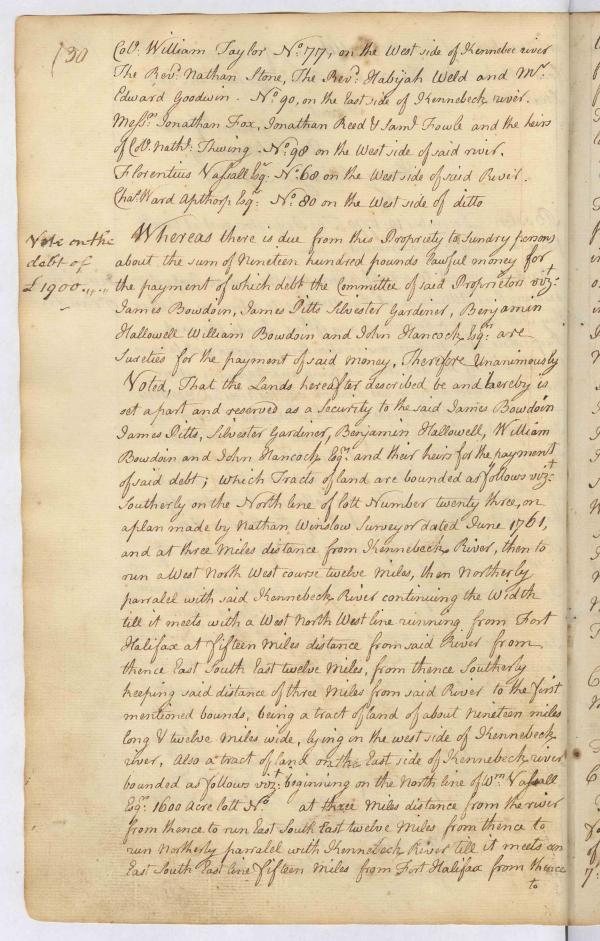 130
Colo. William Taylor No. 77, on the West side of Kennebec river
The Revd. Nathan Stone, The Revd. Habijah Weld and Mr.
Edward Goodwin. No 90, on the East side of Kennebeck river.
Messrs. Jonathan Fox, Jonathan Reed & Saml Fowle and the heirs
of Colo. Nathl. Thwing. No. 98 on the West side of said river.
Florentius Vassall Esqr. No. 68 on the West side of said River.
Chas. Ward Apthorp Esqr. No. 80 on the West side of ditto
Vote on the
debt of
£1900.,,.,,
Whereas there is due from this Propriety to sundry persons
about the sum of Nineteen hundred pounds Lawful money for
the payment of which debt the Committee of said Proprietors vizt.
James Bowdoin, James Pitts Silvester Gardiner, Benjamin
Hallowell William Bowdoin and John Hancock Esqrs. are
Sureties for the payment of said money, Therefore Unanimously
Voted, That the Lands hereafter described be and hereby is
set apart and reserved as a security to the said James Bowdoin
James Pitts, Silvester Gardiner, Benjamin Hallowell, William
Bowdoin and John Hancock Esqrs. and their heirs for the payment
of said debt; which Tracts of land are bounded as follows vizt.
Southerly on the North line of lott Number twenty three, on
a plan made by Nathan Winslow Surveyor dated June 1761,
and at three Miles distance from Kennebeck River, then to
run a West North West course twelve Miles, then Northerly
parralel with said Kennebeck River continuing the Width
till it meets with a West North West line running from Fort
Halifax at fifteen Miles distance from said River from
thence East South East twelve Miles, from thence Southerly
keeping said distance of three Miles from said River to the first
mentioned bounds, being a tract of land of about Nineteen miles
long & twelve Miles wide, lying on the west side of Kennebeck
river, Also a tract of land on the East side of Kennebeck river
bounded as follows vizt: beginning on the North line of Wm Vassall
Esqrs. 1600 Acre lott No. at three Miles distance from the river
from thence to run East South East twelve Miles from thence to
run Northerly parralel with Kennebeck River till it meets an
East South East line fifteen Miles from Fort Halifax from thence
to